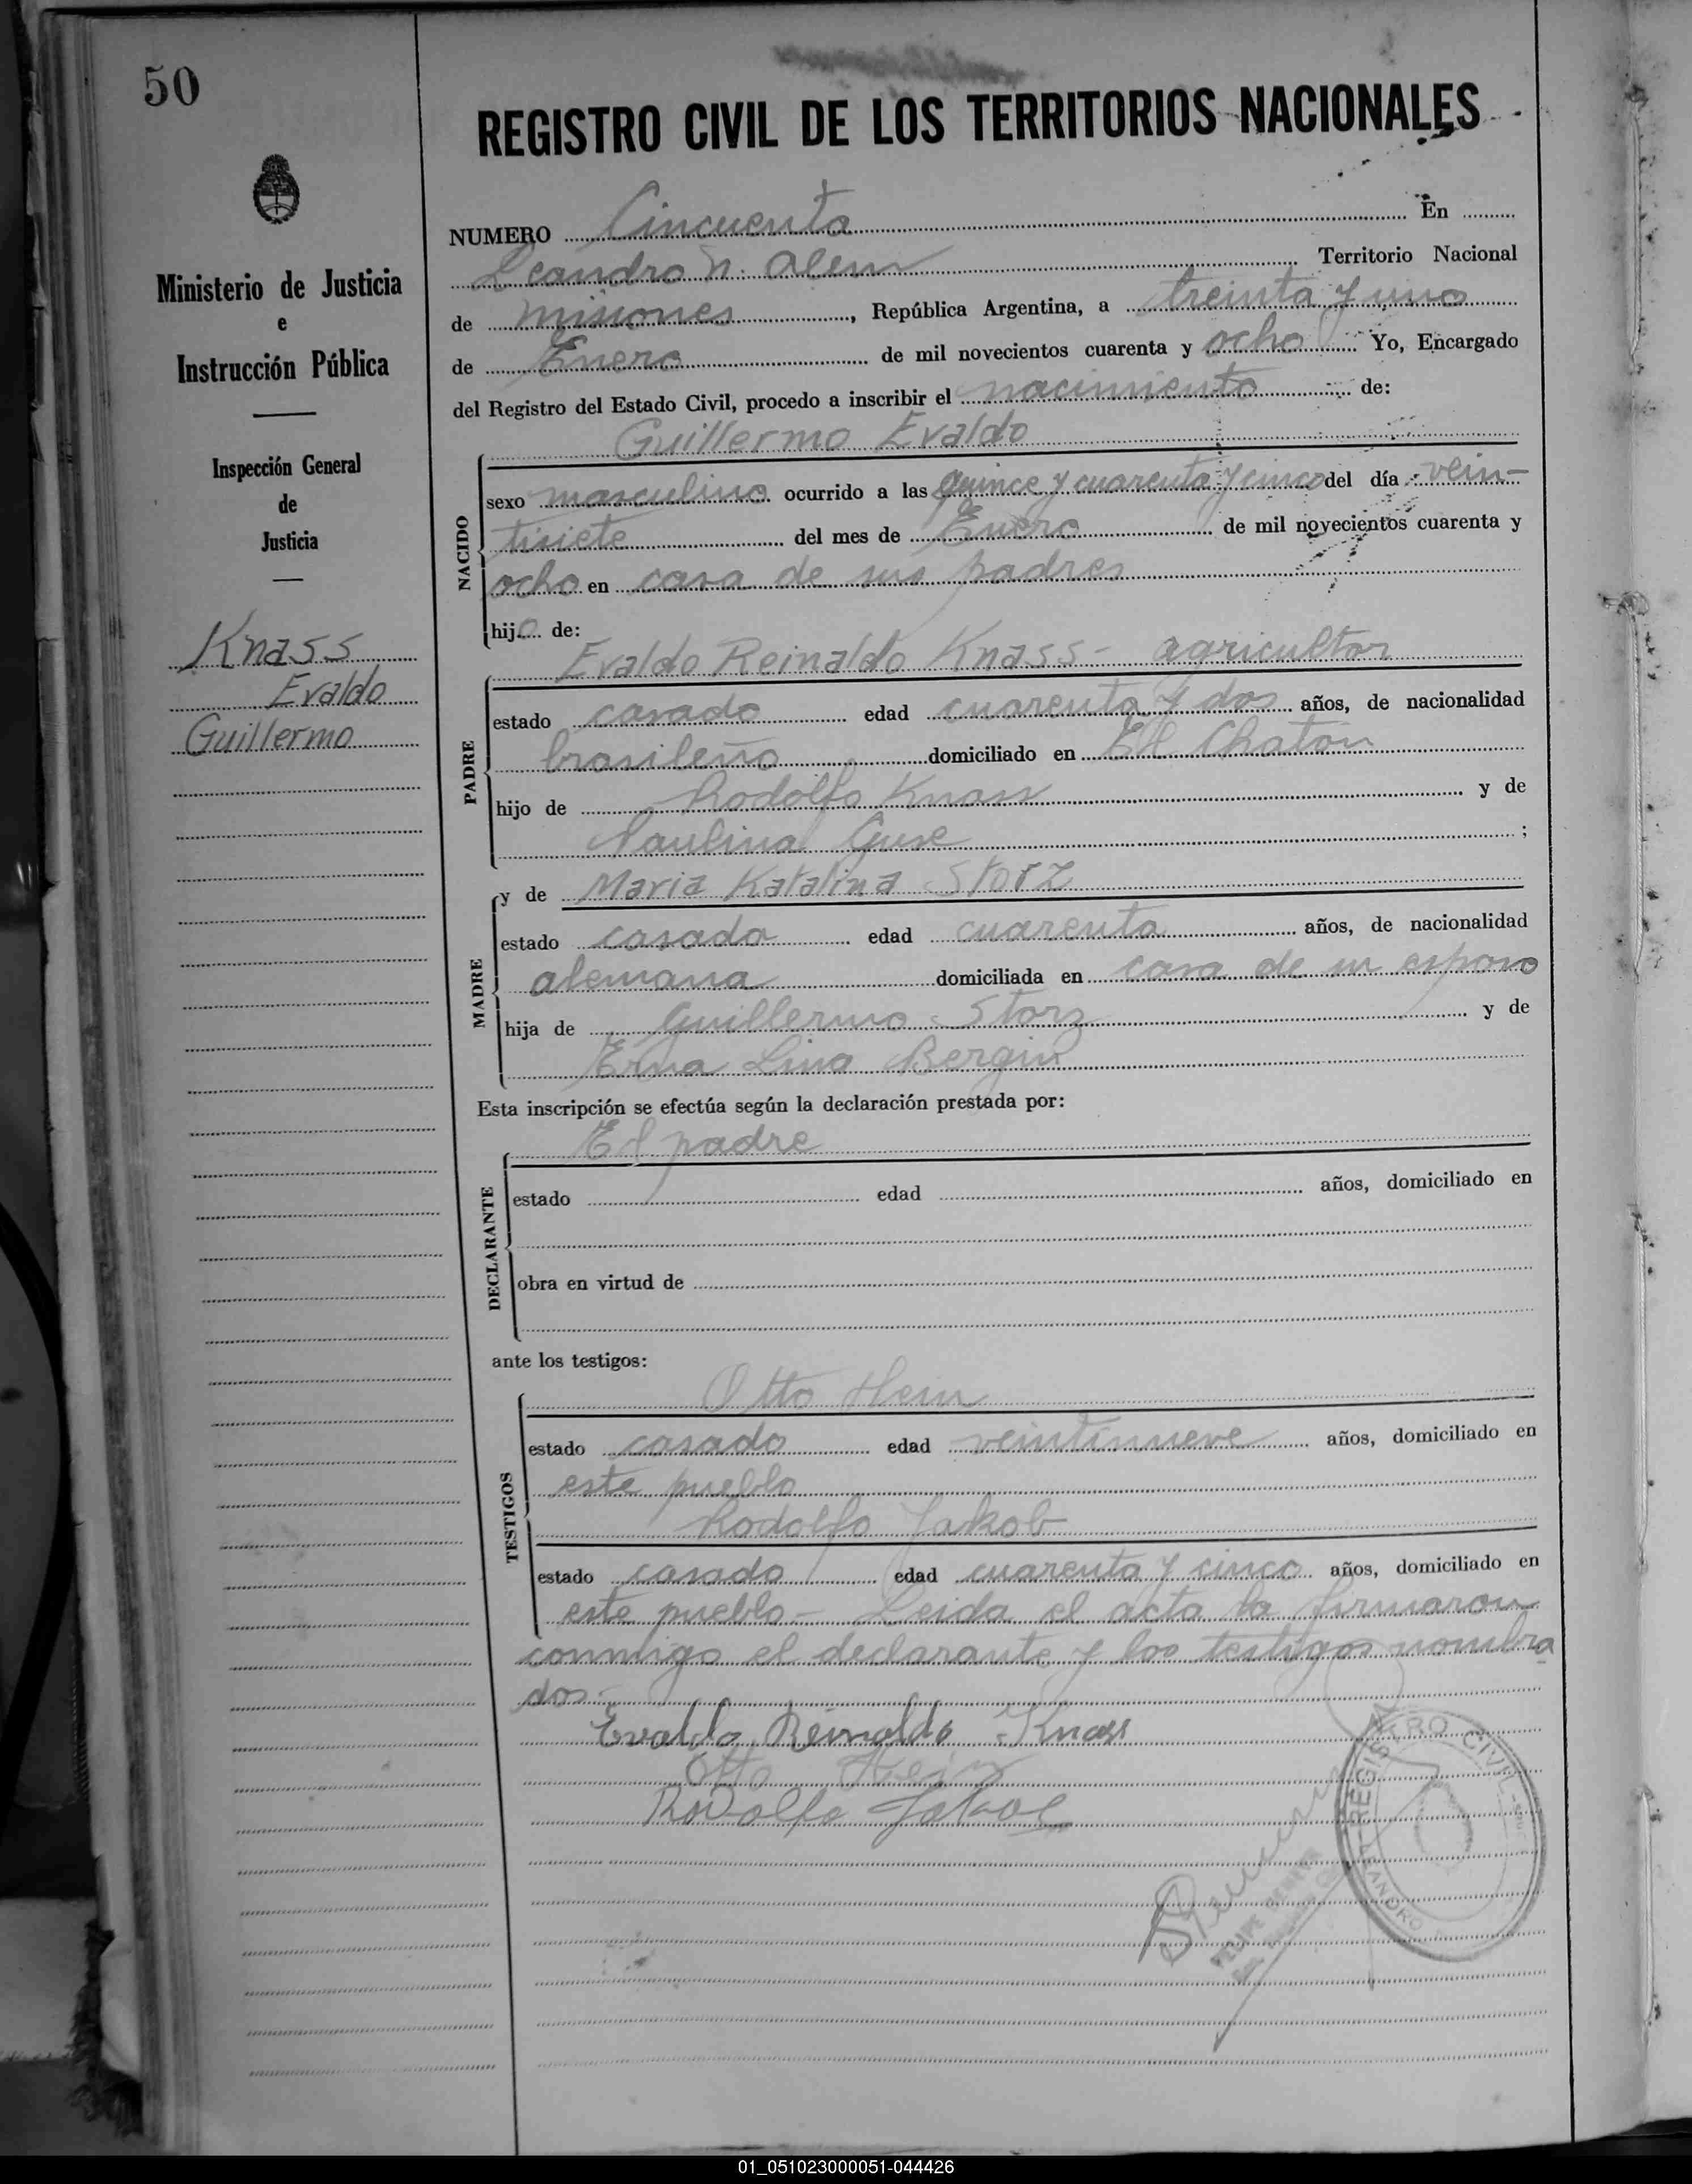 50
Ministerio de Justicia
e
Instrucción Pública
Inspección General
de
Justicia
Knass
Evaldo
Guillermo
REGISTRO CIVIL DE LOS TERRITORIOS NACIONALES
NUMERO Cincuenta En
Leandro N. Alem Territorio Nacional
de Misiones, República Argentina, a treinta y uno
de Enero de mil novecientos cuarenta y ocho Yo, Encargado
del Registro del Estado Civil, procedo a inscribir el nacimiento de:
Guillermo Evaldo
NACIDO
sexo masculino ocurrido a las quince y cuarenta y cinco del día vein-
tisiete del mes de Enero de mil novecientos cuarenta y
ocho en casa de sus padres
hijo de:
Evaldo Reinaldo Knass - agricultor
PADRE
estado casado edad cuarenta y dos años, de nacionalidad
brasileño domiciliado en El Chaton
hijo de Rodolfo Knass y de
Paulina Guse ;
y de Maria Katalina Storz
MADRE
estado casada edad cuarenta años, de nacionalidad
alemana domiciliada en casa de su esposo
hija de Guillermo Storz y de
Erna Lina Bergin
Esta inscripción se efectúa según la declaración prestada por:
El padre
DECLARANTE
estado edad años, domiciliado en
obra en virtud de
ante los testigos:
Otto Hein
TESTIGOS
estado casado edad veintinueve años, domiciliado en
este pueblo
Rodolfo Jakob
estado casado edad cuarenta y cinco años, domiciliado en
este pueblo - Leida el acta la firmaron
conmigo el declarante y los testigos nombra
dos.-
Evaldo Reinaldo Knass
Otto Hein
Rodolfo Jakob
REGISTRO CIVIL
01_051023000051-044426